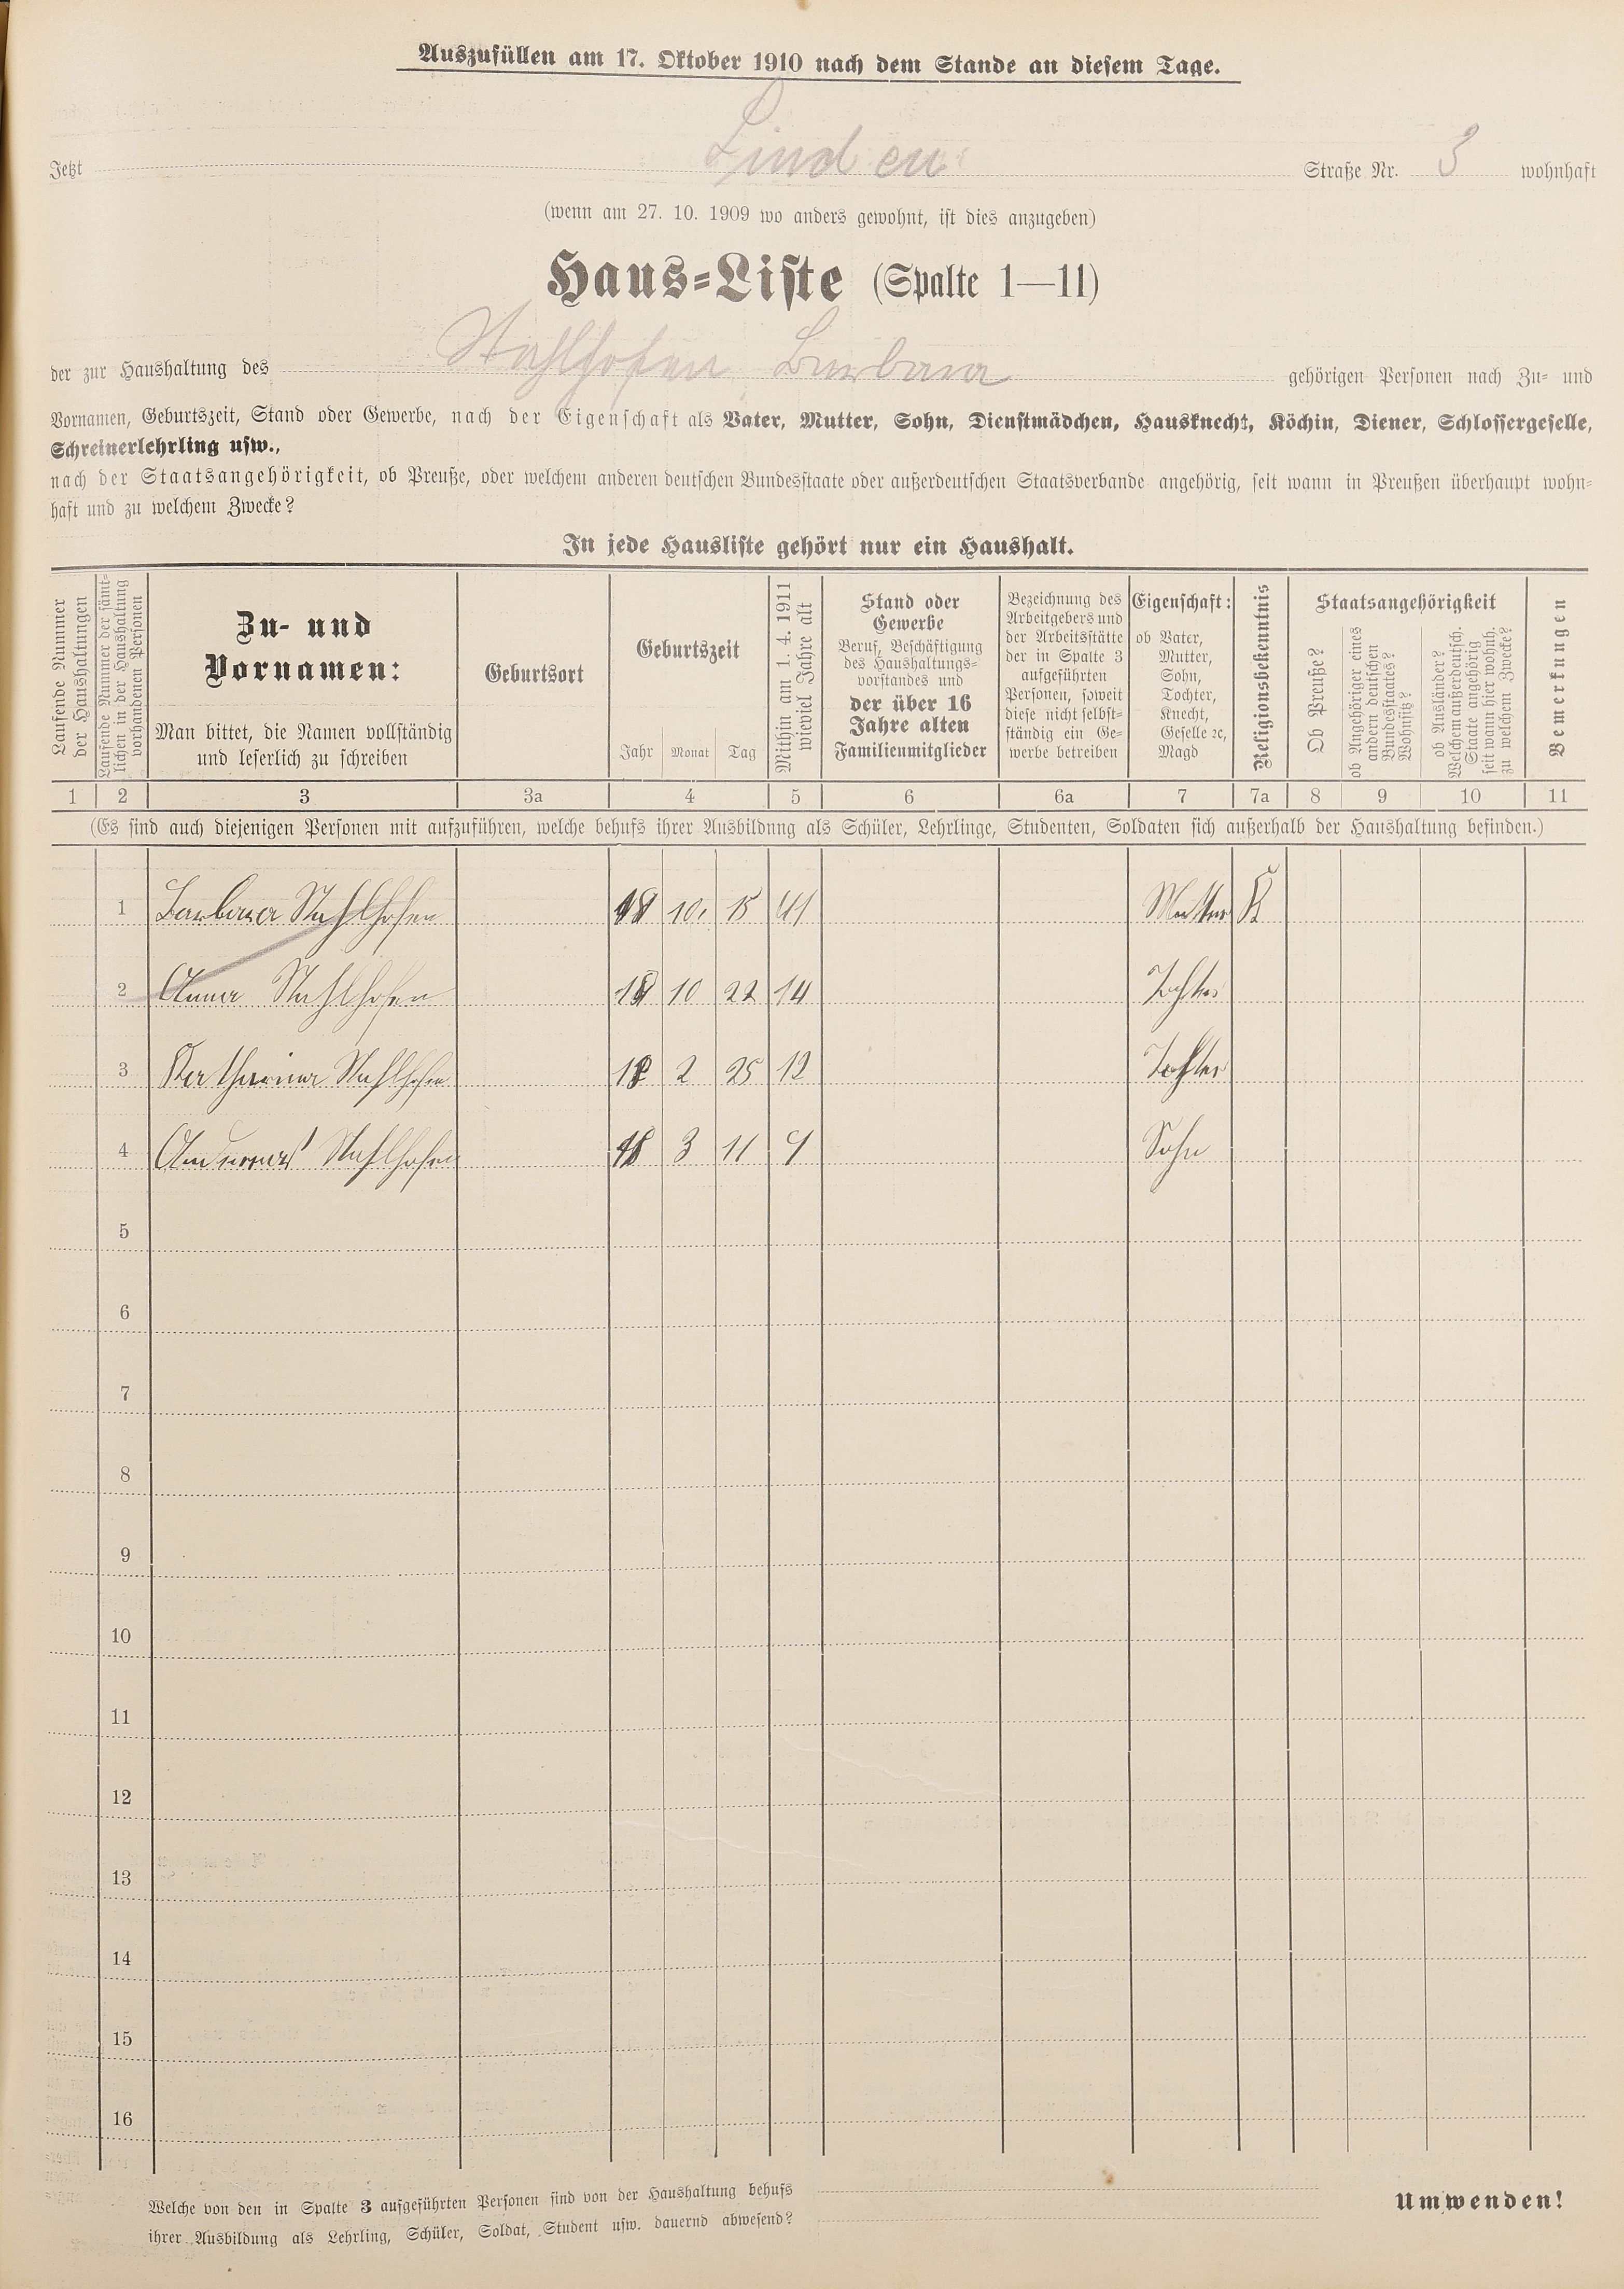 Auszufüllen am 17. Oktober 1910 nach dem Stande an diesem Tage.
Jetzt Linden Straße Nr. 3 wohnhaft
(wenn am 27. 10. 1909 wo anders gewohnt, ist dies anzugeben)
Haus-Liste (Spalte 1—11)
der zur Haushaltung des Stahlhofen Barbara gehörigen Personen nach Zu- und
Vornamen, Geburtszeit, Stand oder Gewerbe, nach der Eigenschaft als Vater, Mutter, Sohn, Dienstmädchen, Hausknecht, Köchin, Diener, Schlossergeselle,
Schreinerlehrling usw.,
nach der Staatsangehörigkeit, ob Preuße, oder welchem anderen deutschen Bundesstaate oder außerdeutschen Staatsverbande angehörig, seit wann in Preußen überhaupt wohn-
haft und zu welchem Zwecke?
In jede Hausliste gehört nur ein Haushalt.
Laufende Nummer
der Haushaltungen
Laufende Nummer der sämt-
lichen in der Haushaltung
vorhandenen Personen
Zu- und
Vornamen:
Man bittet, die Namen vollständig
und leserlich zu schreiben
Geburtsort
Geburtszeit
Jahr Monat Tag
Mithin am 1. 4. 1911
wieviel Jahre alt
Stand oder
Gewerbe
Beruf, Beschäftigung
des Haushaltungs-
vorstandes und
der über 16
Jahre alten
Familienmitglieder
Bezeichnung des
Arbeitgebers und
der Arbeitsstätte
der in Spalte 3
aufgeführten
Personen, soweit
diese nicht selbst-
ständig ein Ge-
werbe betreiben
Eigenschaft:
ob Vater,
Mutter,
Sohn,
Tochter,
Knecht,
Geselle ꝛc,
Magd
Religionsbekenntnis
Staatsangehörigkeit
Ob Preuße?
ob Angehöriger eines
andern deutschen
Bundesstaates?
Wohnsitz?
ob Ausländer?
Welchem außerdeutsch.
Staate angehörig
seit wann hier wohnh.
zu welchem Zwecke?
Bemerkungen
1 2 3 3a 4 5 6 6a 7 7a 8 9 10 11
(Es sind auch diejenigen Personen mit aufzuführen, welche behufs ihrer Ausbildung als Schüler, Lehrlinge, Studenten, Soldaten sich außerhalb der Haushaltung befinden.)
1 Barbara Stahlhofen 10. 15 41 Mutter K
2 Anna Stahlhofen 10 22 14 Tochter
3 Katharina Stahlhofen 2 25 12 Tochter
4 Andreas Stahlhofen 3 11 9 Sohn
5
6
7
8
9
10
11
12
13
14
15
16
Welche von den in Spalte 3 aufgeführten Personen sind von der Haushaltung behufs
ihrer Ausbildung als Lehrling, Schüler, Soldat, Student usw. dauernd abwesend?
Umwenden!